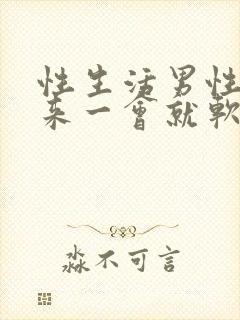 性生活男性
来一會就軟
淼不可言